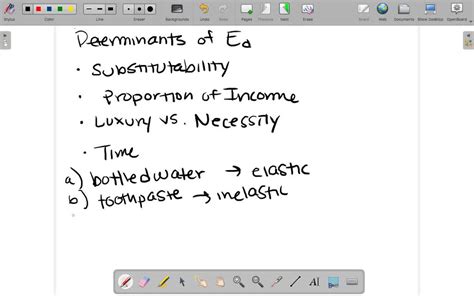 Stylus Color Line Eraser Backgrounds Undo Redo Pages Previous Next Erase Web Documents Show Desktop OpenBoard
Deerminants of Ed
• Substitutability
• Proportion of Income
• Luxury vs. Necessity
• Time
a) bottled water → elastic
b) toothpaste → inelastic